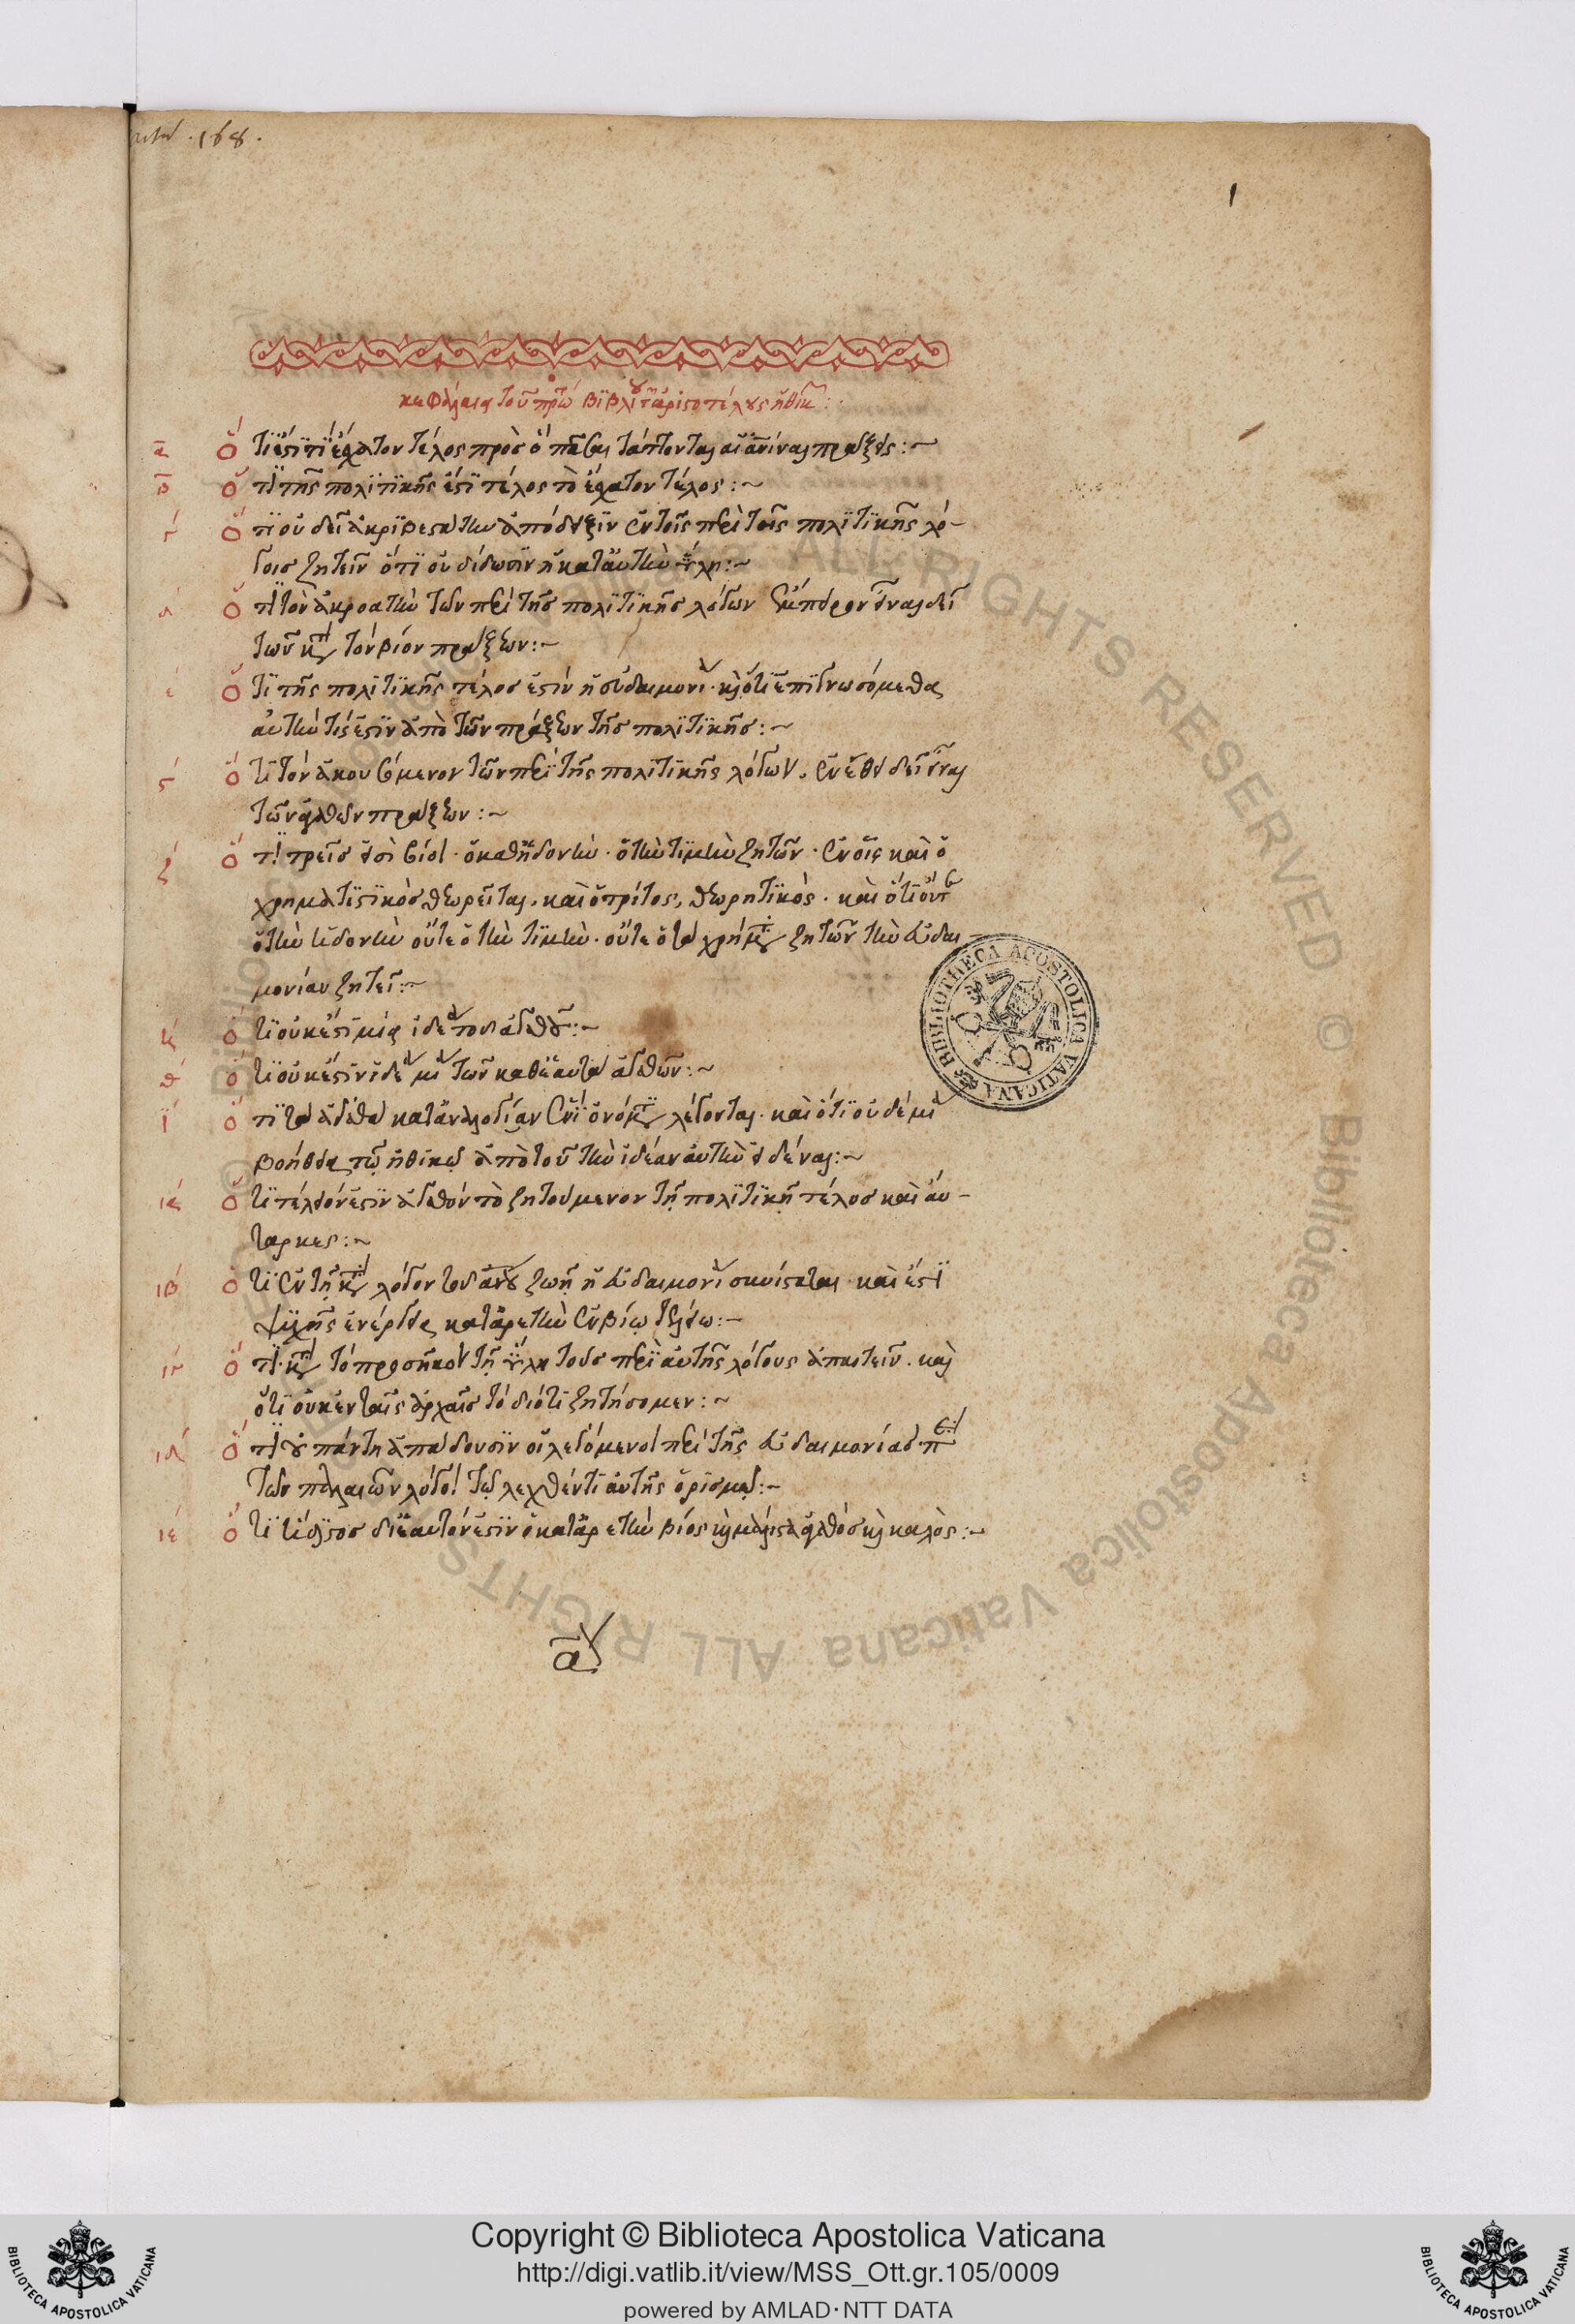 168.
1
κεφάλαια τοῦ πρώτου βιβλίου τῶν ἀριστοτέλους ἠθικῶν:
α ὅτι ἐστί τι ἔσχατον τέλος πρὸς ὃ πᾶσαι τάττονται αἱ ἀνθρώπιναι πράξεις:~
β ὅτι τῆς πολιτικῆς ἐστὶ τέλος τὸ ἔσχατον τέλος:~
γ ὅτι οὐ δεῖ ἀκριβεστάτην ἀπόδειξιν ἐν τοῖς περὶ τοῖς πολιτικῆς λό-
γοις ζητεῖν ὅτι οὐ δίδωσιν ἡ κατ' αὐτὴν ὕλη:~
δ ὅτι τὸν ἀκροατὴν τῶν περὶ τῆς πολιτικῆς λόγων ἔμπειρον εἶναι δεῖ
τῶν κατὰ τὸν βίον πράξεων:~
ε ὅτι τῆς πολιτικῆς τέλος ἐστὶν ἡ εὐδαιμονία· καὶ ὅτι ἐπιγνωσόμεθα
αὐτὴν τίς ἐστιν ἀπὸ τῶν πράξεων τῆς πολιτικῆς:~
ς ὅτι τὸν ἀκουσόμενον τῶν περὶ τῆς πολιτικῆς λόγων, ἐν ἔθει δεῖ εἶναι
τῶν ἀγαθῶν πράξεων:~
ζ ὅτι τρεῖς εἰσὶ βίοι· ὁ καθ' ἡδονὴν· ὁ τὴν τιμὴν ζητῶν· ἐν οἷς καὶ ὁ
χρηματιστικὸς θεωρεῖται, καὶ ὁ τρίτος, θεωρητικὸς· καὶ ὅτι οὔτε
ὁ τὴν ἡδονὴν οὔτε ὁ τὴν τιμὴν· οὔτε ὁ τὰ χρήματα ζητῶν τὴν εὐδαι-
μονίαν ζητεῖ:~
η ὅτι οὐκ ἔστι μία ἰδέα τοῦ ἀγαθοῦ:~
θ ὅτι οὐκ ἔστιν ἰδέα μία τῶν καθ' ἑαυτὰ ἀγαθῶν:~
ι ὅτι τὰ ἀγαθὰ κατ' ἀναλογίαν ἑνὶ ὀνόματι λέγονται· καὶ ὅτι οὐδεμία
βοήθεια τῷ ἠθικῷ ἀπὸ τοῦ τὴν ἰδέαν αὐτὴν εἰδέναι:~
ια ὅτι τέλειόν ἐστιν ἀγαθόν τὸ ζητούμενον τῇ πολιτικῇ τέλος καὶ αὔ-
ταρκες:~
ιβ ὅτι ἐν τῇ κατὰ λόγον τοῦ ἀνθρώπου ζωῇ ἡ εὐδαιμονία συνίσταται· καὶ ἐστὶ
ψυχῆς ἐνέργεια κατ' ἀρετὴν ἐν βίῳ τελείῳ:~
ιγ ὅτι κατὰ τὸ προσῆκον τῇ ὕλῃ τοὺς περὶ αὐτῆς λόγους ἀπαιτεῖν. καὶ
ὅτι οὐκ ἐν ταῖς ἀρχαῖς τὸ διότι ζητήσομεν:~
ιδ ὅτι οὐ πάντη ἀπᾴδουσιν οἱ λεγόμενοι περὶ τῆς εὐδαιμονίας παρὰ
τῶν παλαιῶν λόγοι τῷ λεχθέντι αὐτῆς ὁρισμῷ:~
ιε ὅτι ἥδιστος δι' ἑαυτόν ἐστιν ὁ κατ' ἀρετὴν βίος καὶ μάλιστα ἀγαθός καὶ καλὸς:~
BIBLIOTHECA APOSTOLICA VATICANA
© Biblioteca Apostolica Vaticana ALL RIGHTS RESERVED
Copyright © Biblioteca Apostolica Vaticana
http://digi.vatlib.it/view/MSS_Ott.gr.105/0009
powered by AMLAD·NTT DATA
BIBLIOTECA APOSTOLICA VATICANA
BIBLIOTECA APOSTOLICA VATICANA